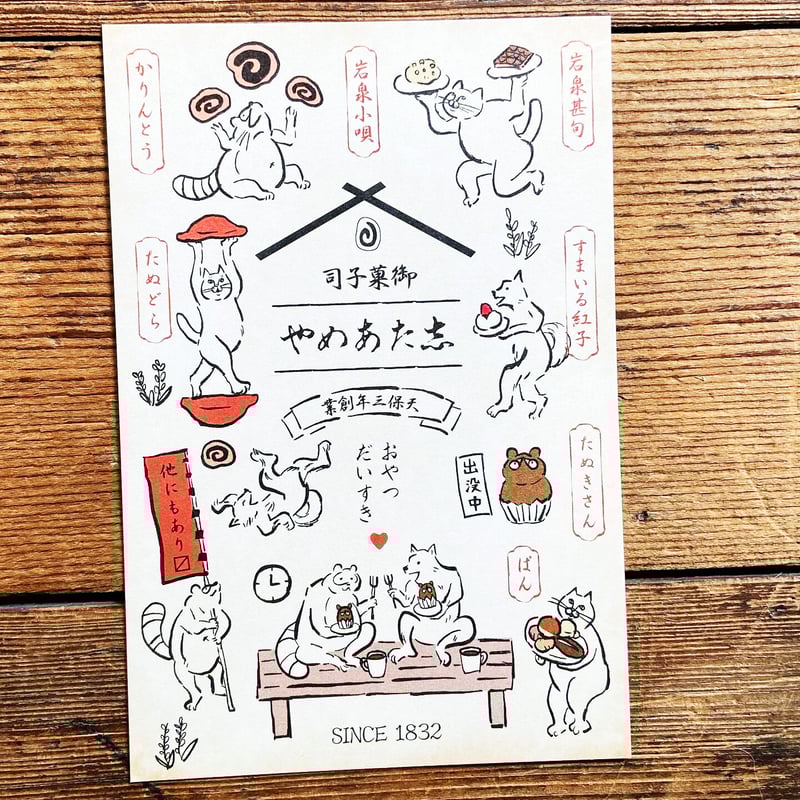 岩泉甚句
岩泉小唄
かりんとう
すまいる紅子
たぬどら
御菓子司
志たあめや
天保三年創業
たぬきさん
出没中
おやつ
だいすき
他にもあり〼
ぱん
SINCE 1832